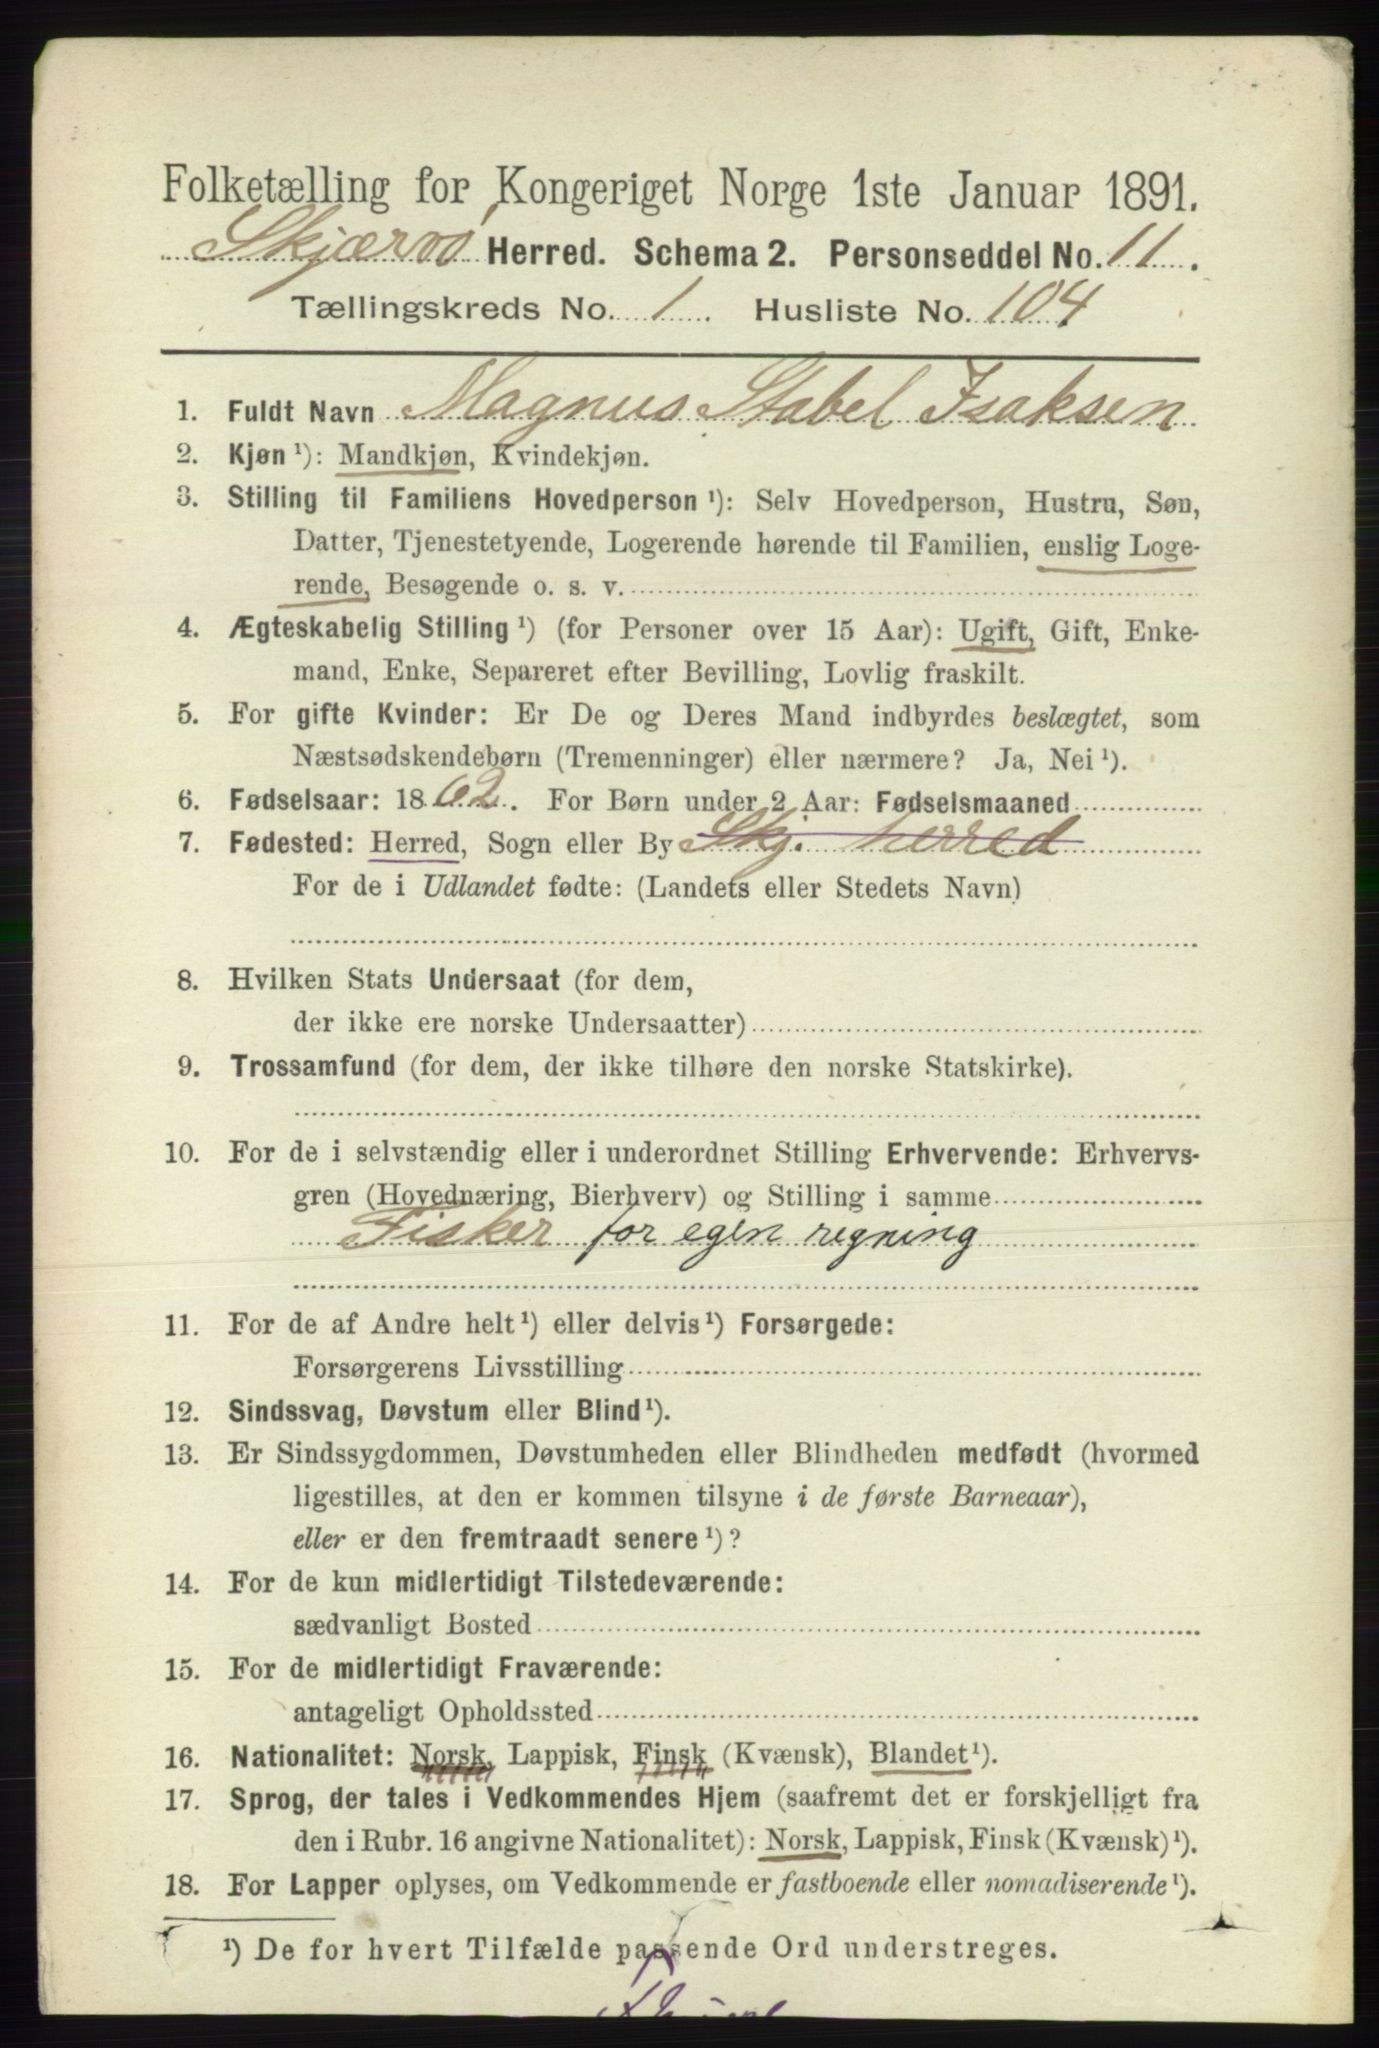 Folketælling for Kongeriget Norge 1ste Januar 1891.
Skjærvö Herred. Schema 2. Personseddel No. 11.
Tællingskreds No. 1. Husliste No. 104.
1. Fuldt Navn Magnus Stabel Isaksen
2. Kjøn ¹): Mandkjøn, Kvindekjøn.
3. Stilling til Familiens Hovedperson ¹): Selv Hovedperson, Hustru, Søn,
Datter, Tjenestetyende, Logerende hørende til Familien, enslig Loge-
rende, Besøgende o. s. v.
4. Ægteskabelig Stilling ¹) (for Personer over 15 Aar): Ugift, Gift, Enke-
mand, Enke, Separeret efter Bevilling, Lovlig fraskilt.
5. For gifte Kvinder: Er De og Deres Mand indbyrdes beslægtet, som
Næstsødskendebørn (Tremenninger) eller nærmere? Ja, Nei ¹).
6. Fødselsaar: 1862. For Børn under 2 Aar: Fødselsmaaned
7. Fødested: Herred, Sogn eller By Skj. herred
For de i Udlandet fødte: (Landets eller Stedets Navn)
8. Hvilken Stats Undersaat (for dem,
der ikke ere norske Undersaatter)
9. Trossamfund (for dem, der ikke tilhøre den norske Statskirke).
10. For de i selvstændig eller i underordnet Stilling Erhvervende: Erhvervs-
gren (Hovednæring, Bierhverv) og Stilling i samme
Fisker for egen regning
11. For de af Andre helt ¹) eller delvis ¹) Forsørgede:
Forsørgerens Livsstilling
12. Sindssvag, Døvstum eller Blind ¹).
13. Er Sindssygdommen, Døvstumheden eller Blindheden medfødt (hvormed
ligestilles, at den er kommen tilsyne i de første Barneaar),
eller er den fremtraadt senere ¹)?
14. For de kun midlertidigt Tilstedeværende:
sædvanligt Bosted
15. For de midlertidigt Fraværende:
antageligt Opholdssted
16. Nationalitet: Norsk, Lappisk, Finsk (Kvænsk), Blandet ¹).
17. Sprog, der tales i Vedkommendes Hjem (saafremt det er forskjelligt fra
den i Rubr. 16 angivne Nationalitet): Norsk, Lappisk, Finsk (Kvænsk) ¹).
18. For Lapper oplyses, om Vedkommende er fastboende eller nomadiserende ¹).
¹) De for hvert Tilfælde passende Ord understreges.